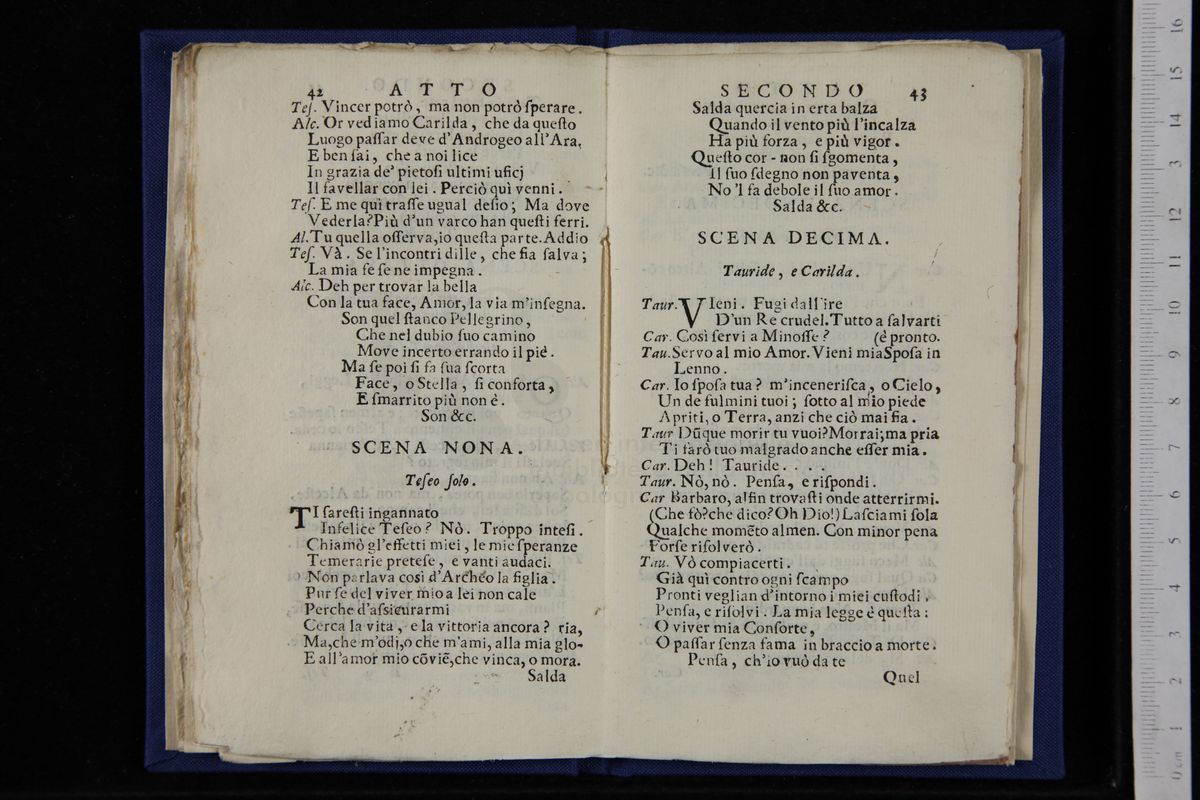 42 ATTO
Teſ. Vincer potrò, ma non potrò ſperare.
Alc. Or vediamo Carilda, che da queſto
Luogo paſſar deve d'Androgeo all'Ara,
E ben ſai, che a noi lice
In grazia de' pietoſi ultimi uficj
Il favellar con lei. Perciò quì venni.
Teſ. E me quì traſſe ugual deſio; Ma dove
Vederla? Più d'un varco han queſti ferri.
Al. Tu quella oſſerva, io queſta parte. Addio
Teſ. Và. Se l'incontri dille, che ſia ſalva;
La mia fe ſe ne impegna.
Alc. Deh per trovar la bella
Con la tua face, Amor, la via m'inſegna.
Son quel ſtanco Pellegrino,
Che nel dubio ſuo camino
Move incerto errando il piè.
Ma ſe poi ſi fa ſua ſcorta
Face, o Stella, ſi conforta,
E ſmarrito più non è.
Son &c.
SCENA NONA.
Teſeo ſolo.
TI fareſti ingannato
Infelice Teſeo? Nò. Troppo inteſi.
Chiamò gl'effetti miei, le mie ſperanze
Temerarie preteſe, e vanti audaci.
Non parlava così d'Archéo la figlia.
Pur ſe del viver mio a lei non cale
Perche d'aſsicurarmi
Cerca la vita, e la vittoria ancora? ria,
Ma, che m'odj, o che m'ami, alla mia glo-
E all'amor mio cõviẽ, che vinca, o mora.
Salda
SECONDO 43
Salda quercia in erta balza
Quando il vento più l'incalza
Ha più forza, e più vigor.
Queſto cor - non ſi ſgomenta,
Il ſuo ſdegno non paventa,
No 'l fa debole il ſuo amor.
Salda &c.
SCENA DECIMA.
Tauride, e Carilda.
Taur. VIeni. Fugi dall'ire
D'un Re crudel. Tutto a ſalvarti
Car. Così ſervi a Minoſſe? (è pronto.
Tau. Servo al mio Amor. Vieni mia Spoſa in
Lenno.
Car. Io ſpoſa tua? m'inceneriſca, o Cielo,
Un de fulmini tuoi; ſotto al mio piede
Apriti, o Terra, anzi che ciò mai ſia.
Taur Dũque morir tu vuoi? Morrai; ma pria
Ti farò tuo malgrado anche eſſer mia.
Car. Deh! Tauride....
Taur. Nò, nò. Penſa, e riſpondi.
Car Barbaro, alfin trovaſti onde atterrirmi.
(Che fò? che dico? Oh Dio!) Laſciami ſola
Qualche momẽto almen. Con minor pena
Forſe riſolverò.
Tau. Vò compiacerti.
Già quì contro ogni ſcampo
Pronti veglian d'intorno i miei cuſtodi.
Penſa, e riſolvi. La mia legge è queſta:
O viver mia Conſorte,
O paſſar ſenza fama in braccio a morte.
Penſa, ch'io vuò da te
Quel
0 cm 1 2 3 4 5 6 7 8 9 10 11 12 13 14 15 16